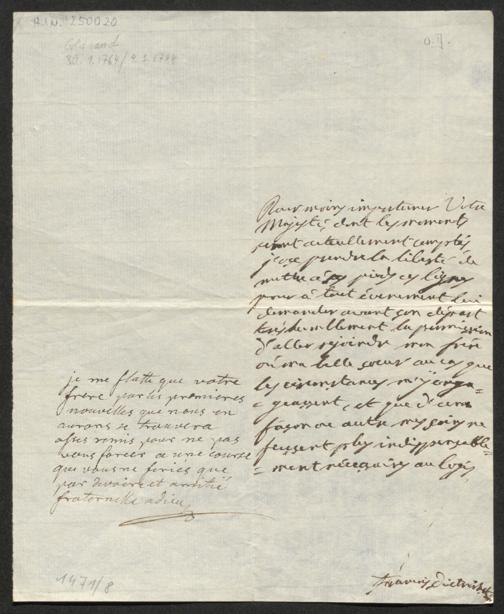 A.I.N. 250020
30.1.1764/9.2.1764
o. J.
Pour moins importuner Votre
Majesté, dont les moments
sont actuellement comptés
j'ose prendre la liberté de
mettre à ses pieds ces lignes
pour à tout évenement lui
demander avant son départ
très humblement la permission
d'aller rejoindre mon frère
ou ma belle soeur au cas que
les circonstances m'y enga-
-geassent, et que d'une
façon ou autre mes soins ne
fussent plus indispensable-
-ment nécessaires au logis
François Dietrichst
je me flatte que votre
frere par les premieres
nouvelles que nous en
aurons se trouvera
assés remis pour ne pas
vous forcer a une course
que vous ne feriés que
par devoir et amitié
fraternelle adieu
1471/8